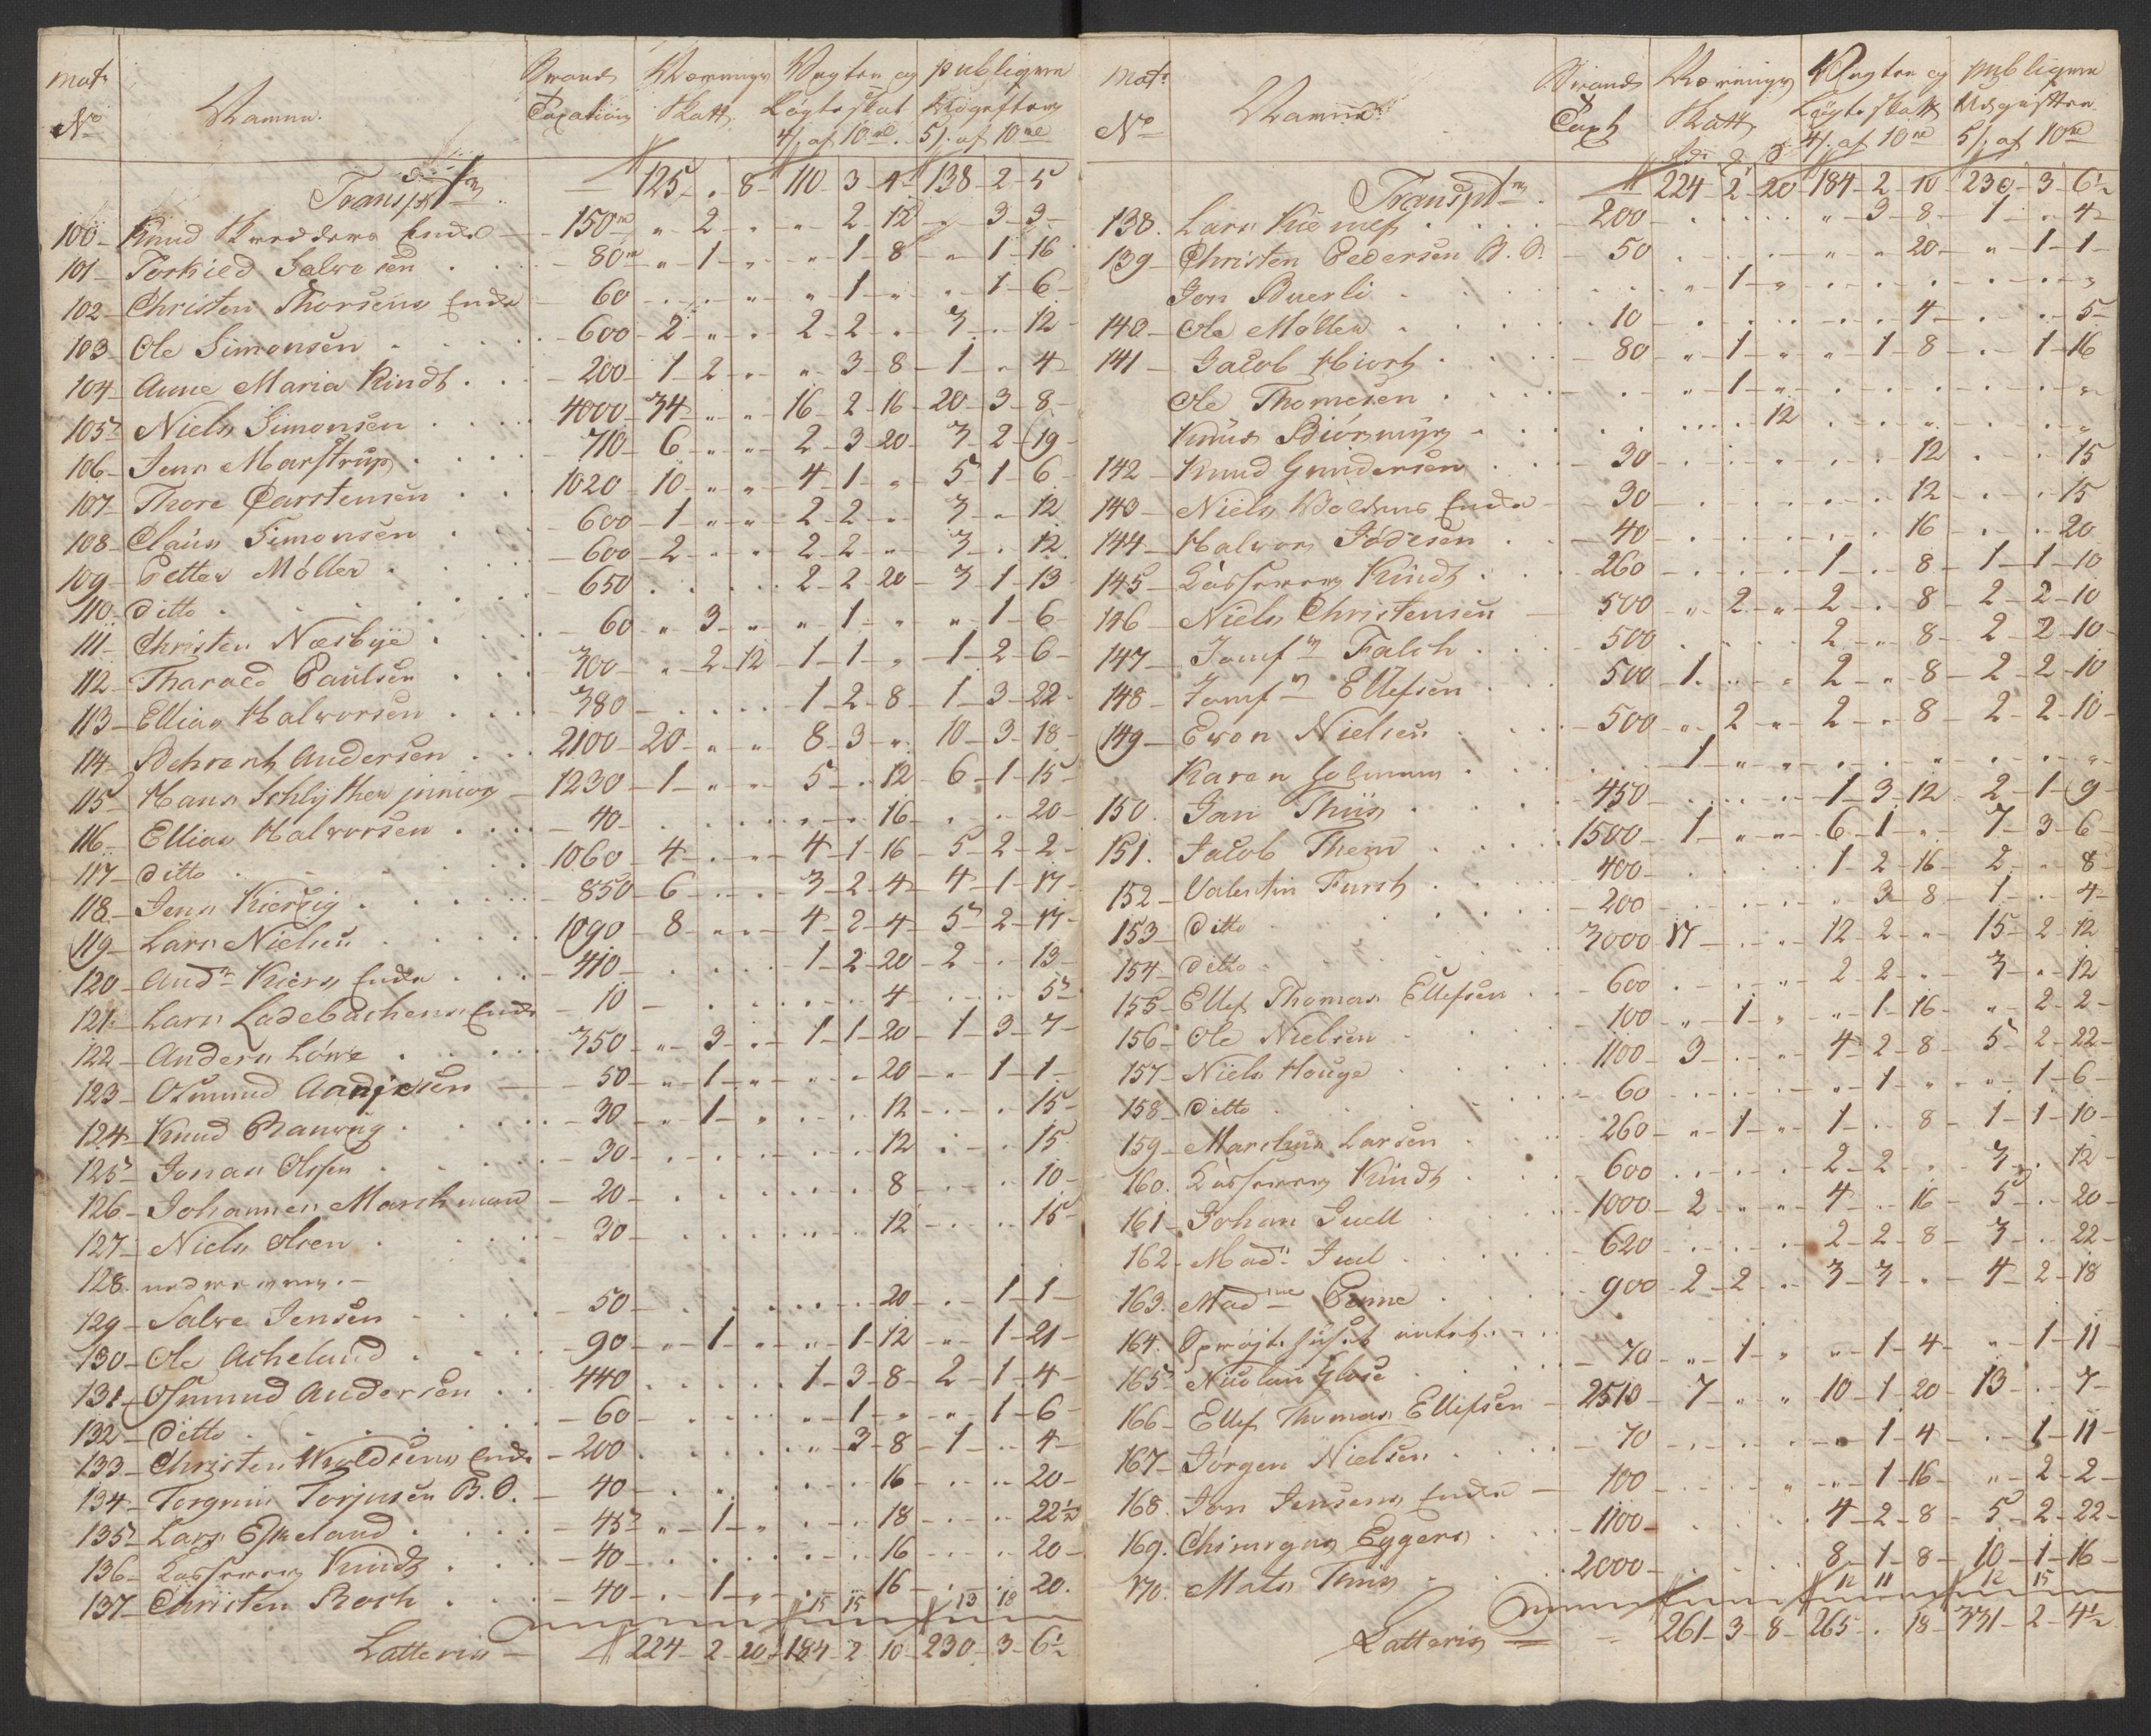 Matr No Namne. Brand Taxation Nærings Skatt Vagten og Løgteskat 4/. af 10rd. publiqve Udgifter 5/. af 10rd
Transpt 125 - . - 8 - 110 - 3 - 4 - 138 - 2 - 5
100 - Knud Enke - 150rd - " - 2 - " - " - 2 - 12 - " - 3 - 3
101 - Torkild Salvesen - 80rd - " - 1 - " - " - 1 - 8 - " - 1 - 16
102 - Christen Thorsens Enke - 60 - " - 1 - " - " - 1 - 6
103 - Ole Simonsen - 600 - 2 - " - " - 2 - 2 - " - 3 - " - 12
104 - Anne Maria Kindt - 200 - 1 - 2 - " - " - 3 - 8 - 1 - " - 4
105 - Niels Simonsen - 4000 - 34 - " - " - 16 - 2 - 16 - 20 - 3 - 8
106 - Jens Marstrup - 710 - 6 - " - " - 2 - 3 - 20 - 3 - 2 - 19
107 - Thore Carstensen - 1020 - 10 - " - " - 4 - 1 - " - 5 - 1 - 6
108 - Claus Simonsen - 600 - 1 - " - " - 2 - 2 - " - 3 - " - 12
109 - Petter Møller - 600 - 2 - " - " - 2 - 2 - " - 3 - " - 12
110 - Ditto - 650 - 2 - 2 - 20 - 3 - 1 - 13
111 - Christen Næsbye - 60 - " - 3 - " - " - 1 - " - " - 1 - 6
112 - Tharald Paulsen - 300 - " - 2 - 12 - 1 - 1 - " - 1 - 2 - 6
113 - Ellias Halvorsen - 380 - 1 - 2 - 8 - 1 - 3 - 22
114 - Behrent Andersen - 2100 - 20 - " - " - 8 - 3 - " - 10 - 3 - 18
115 - Hans Schlyther junior - 1230 - 1 - " - " - 5 - " - 12 - 6 - 1 - 15
116 - Ellias Halvorsen - 40 - 16 - 20
117 - Ditto - 1060 - 4 - " - " - 4 - 1 - 16 - 5 - 2 - 2
118 - Jens Kierzig - 850 - 6 - " - " - 3 - 2 - 4 - 4 - 1 - 17
119 - Lars Nielsen - 1090 - 8 - " - " - 4 - 2 - 4 - 5 - 2 - 17
120 - Andrs Kiers Enke - 410 - 1 - 2 - 20 - 2 - " - 13
121 - Lars Ladebachens Enke - 10 - 4 - 5
122 - Anders Løwe - 350 - " - 3 - " - 1 - 1 - 20 - 1 - 3 - 7
123 - Osmund Aanjesen - 50 - " - 1 - " - " - " - 20 - " - 1 - 1
124 - Knud Ranvig - 30 - " - 1 - " - 12 - 15
125 - Jonas Olsen - 30 - 12 - 15
126 - Johannes Marchmand - 20 - 8 - 10
127 - Niels Olsen - 30 - 12 - 15
128 -
129 - Salve Jensen - 50 - 20 - " - 1 - 1
130 - Ole Acheland - 90 - " - 1 - " - " - 1 - 12 - " - 1 - 21
131 - Osmund Andersen - 440 - 1 - 3 - 8 - 2 - 1 - 4
132 - Ditto - 60 - " - 1 - " - " - 1 - 6
133 - Christen Woldsens Enke - 200 - " - 3 - 8 - 1 - " - 4
134 - Torgrim Torjusen B.O. - 40 - 16 - 20
135 - Lars Eskeland - 45 - " - 1 - " - 18 - 22½
136 - Kindt - 40 - 16 - 20
137 - Christen Roch - 40 - " - 1 - " - 16 - 20.
15 15 13 18
Latteris - 224 - 2 - 20 - 184 - 2 - 10 - 230 - 3 - 6½
Matr No Namne Brand Taxt Nærings Skatt Vagten og Løgteskatt 4/. af 10rd publiqve Udgifter 5/. af 10rd
Transpt 224 - 2 - 20 - 184 - 2 - 10 - 230 - 3 - 6½
138. Lars - 200 - " - 3 - 8 - 1 - " - 4
139 - Christen Pedersen B.D. - 50 - " - " - 20 - " - 1 - 1
Jon Buerli - " - 1 - "
140 - Ole Møller - 10 - 4 - 5
141 - Jacob Hiort - 80 - " - 1 - " - " - 1 - 8 - " - 1 - 16
Ole Thomesen - " - 1 - "
Knud Biørmyr - 12
142 - Knud Gundersen - 30 - 12 - 15
143 - Niels Enke - 30 - 12 - 15
144 - Halvor Jødesen - 40 - 16 - 20
145 - Kindt - 260 - 1 - " - 8 - 1 - 1 - 10
146 - Niels Christensen - 500 - " - 2 - " - 2 - " - 8 - 2 - 2 - 10
147 - Jomfr Falch - 500 - 2 - " - 8 - 2 - 2 - 10
148 - Jomfr Ellefsen - 500 - 1 - " - " - 2 - " - 8 - 2 - 2 - 10
149 - Even Nielsen - 500 - " - 2 - " - 2 - " - 8 - 2 - 2 - 10
Karen - 1 - " - "
150. Jan Thiis - 450 - 1 - 3 - 12 - 2 - 1 - 9
151. Jacob Thein - 1500 - 1 - " - " - 6 - 1 - " - 7 - 3 - 6
152 - Valentin Fürst - 400 - 1 - 2 - 16 - 2 - " - 8
153 - Ditto - 200 - " - 3 - 8 - 1 - " - 4
154 - Ditto - 3000 - 17 - " - " - 12 - 2 - " - 15 - 2 - 12
155 - Ellef Thomas Ellefsen - 600 - 2 - 2 - " - 3 - " - 12
156 - Ole Nielsen - 100 - " - 1 - " - " - 1 - 16 - " - 2 - 2
157 - Niels Houge - 1100 - 3 - " - " - 4 - 2 - 8 - 5 - 2 - 22
158 - Ditto - 60 - " - 1 - " - " - 1 - 6
159 - Marchus Larsen - 260 - " - 1 - " - 1 - " - 8 - 1 - 1 - 10
160. Kindt - 600 - 2 - 2 - " - 3 - " - 12
161 - Johan Juell - 1000 - 2 - " - " - 4 - " - 16 - 5 - " - 20
162 - Mad: Juel - 620 - 2 - 2 - 8 - 3 - " - 22
163. Madme Penne - 900 - 2 - 2 - " - 3 - 3 - " - 4 - 2 - 18
164. Sprøjtehuset
165 - Nicolai - 70 - " - 1 - " - " - 1 - 4 - " - 1 - 11
166 - Ellef Thomas Ellefsen - 2510 - 7 - " - " - 10 - 1 - 20 - 13 - " - 7
167 - Jørgen Nielsen - 70 - 1 - 4 - 1 - 11
168. Jon Jensens Enke - 100 - " - 1 - 16 - " - 2 - 2
169. Chirurgus Eggers - 1100 - 4 - 2 - 8 - 5 - 2 - 22
170. Mats Thiis - 2000 - 8 - 1 - 8 - 10 - 1 - 16
12 11 12 15
Latteris - 261 - 3 - 8 - 265 - . - 18 - 331 - 2 - 4½